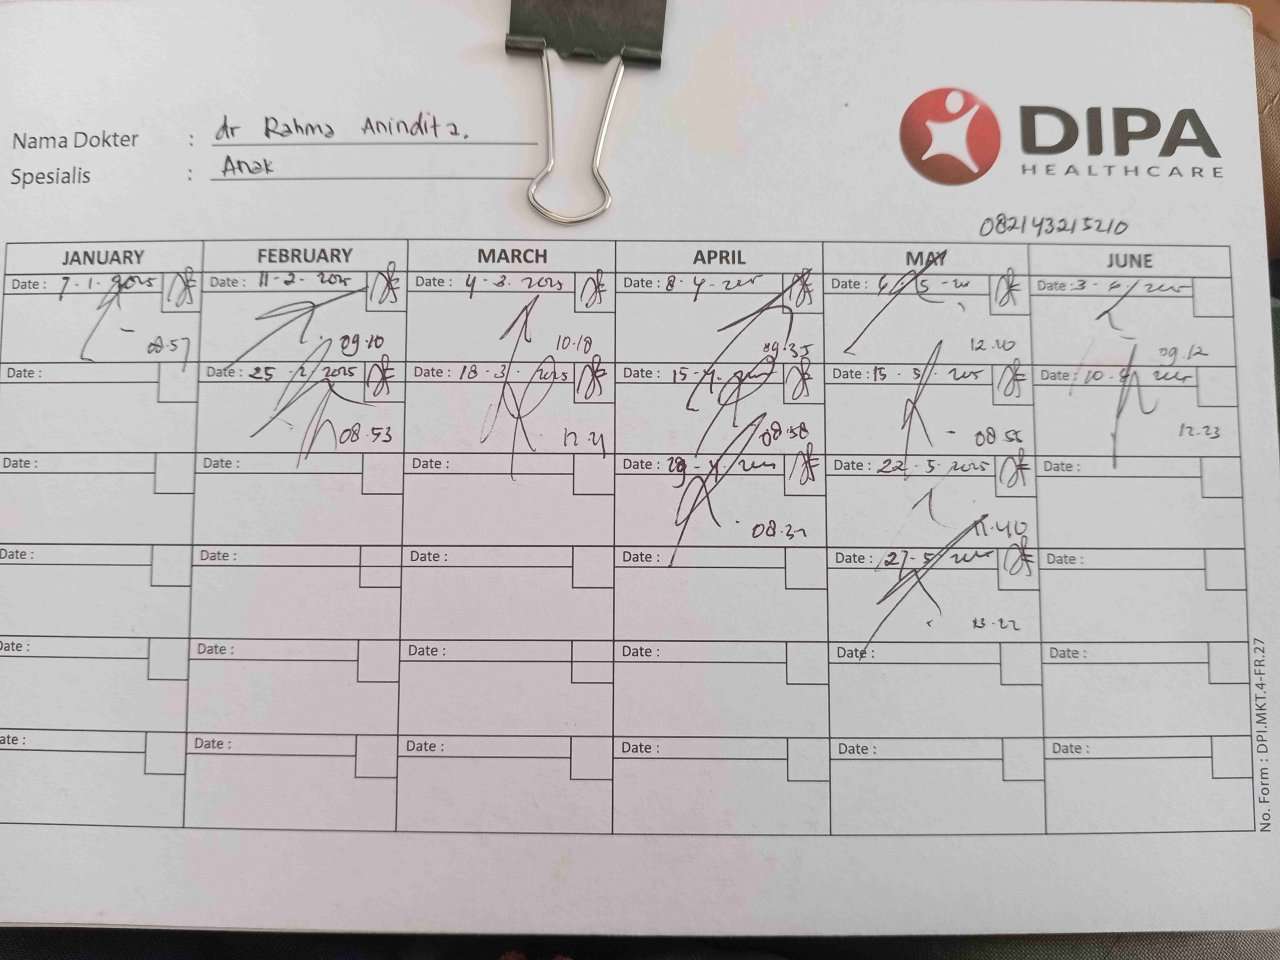 Nama Dokter : dr Rahma Anindita.
Spesialis : Anak
DIPA
HEALTHCARE
082143215210
JANUARY FEBRUARY MARCH APRIL MAY JUNE
Date : 7-1-2025 Date : 11-2-2025 Date : 4-3-2025 Date : 8-4-2025 Date : 6-5-20 Date : 3-6-2025
08.57 09.10 10.18 09.35 12.40 09.12
Date : Date : 25-2-2025 Date : 18-3-2025 Date : 15-4-2025 Date : 15-5-2025 Date : 10-6-2025
08.53 12.21 08.58 08.55 12.23
Date : Date : Date : Date : 29-4-2025 Date : 22-5-2025 Date :
08.32 11.40
Date : Date : Date : Date : Date : 27-5-2025 Date :
13.22
Date : Date : Date : Date : Date : Date :
ate : Date : Date : Date : Date : Date :
No. Form : DPI.MKT.4-FR.27